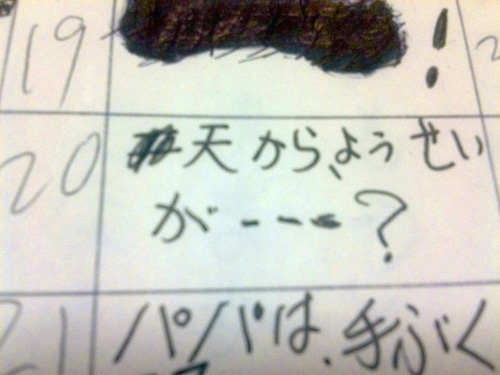 19 !
20 天から、ようせい
が---?
21 パパは、手ぶく